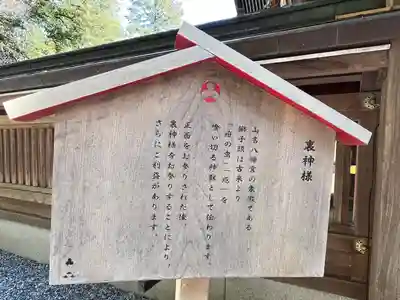 裏神様
山名八幡宮の象徴である
獅子頭は古来より
「癌の虫（厄）」を
喰い切る神獣として伝わります。
正面をお参りされた後、
裏神様をお参りすることにより、
さらにご利益があります。